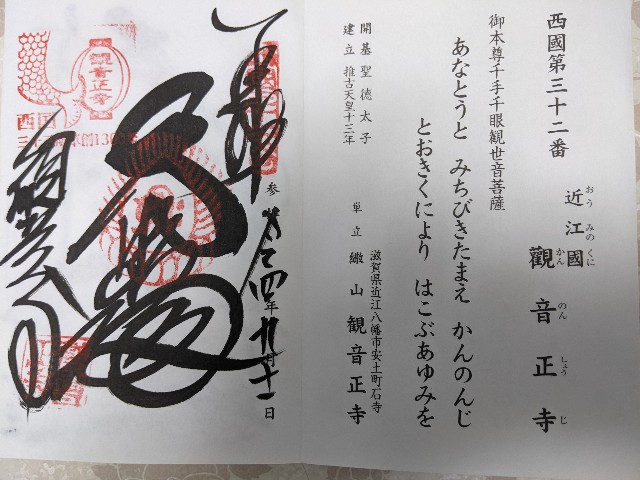 西國第三十二番
近江國
おうみのくに
觀音正寺
かんのんしょうじ
御本尊千手千眼観世音菩薩
あなとうと みちびきたまえ かんのんじ
とおきくにより はこぶあゆみを
開基聖德太子
建立推古天皇十三年
滋賀県近江八幡市安土町石寺
単立 繖山 觀音正寺
奉拝
令和四年九月十一日
大悲殿
觀音正寺
西国